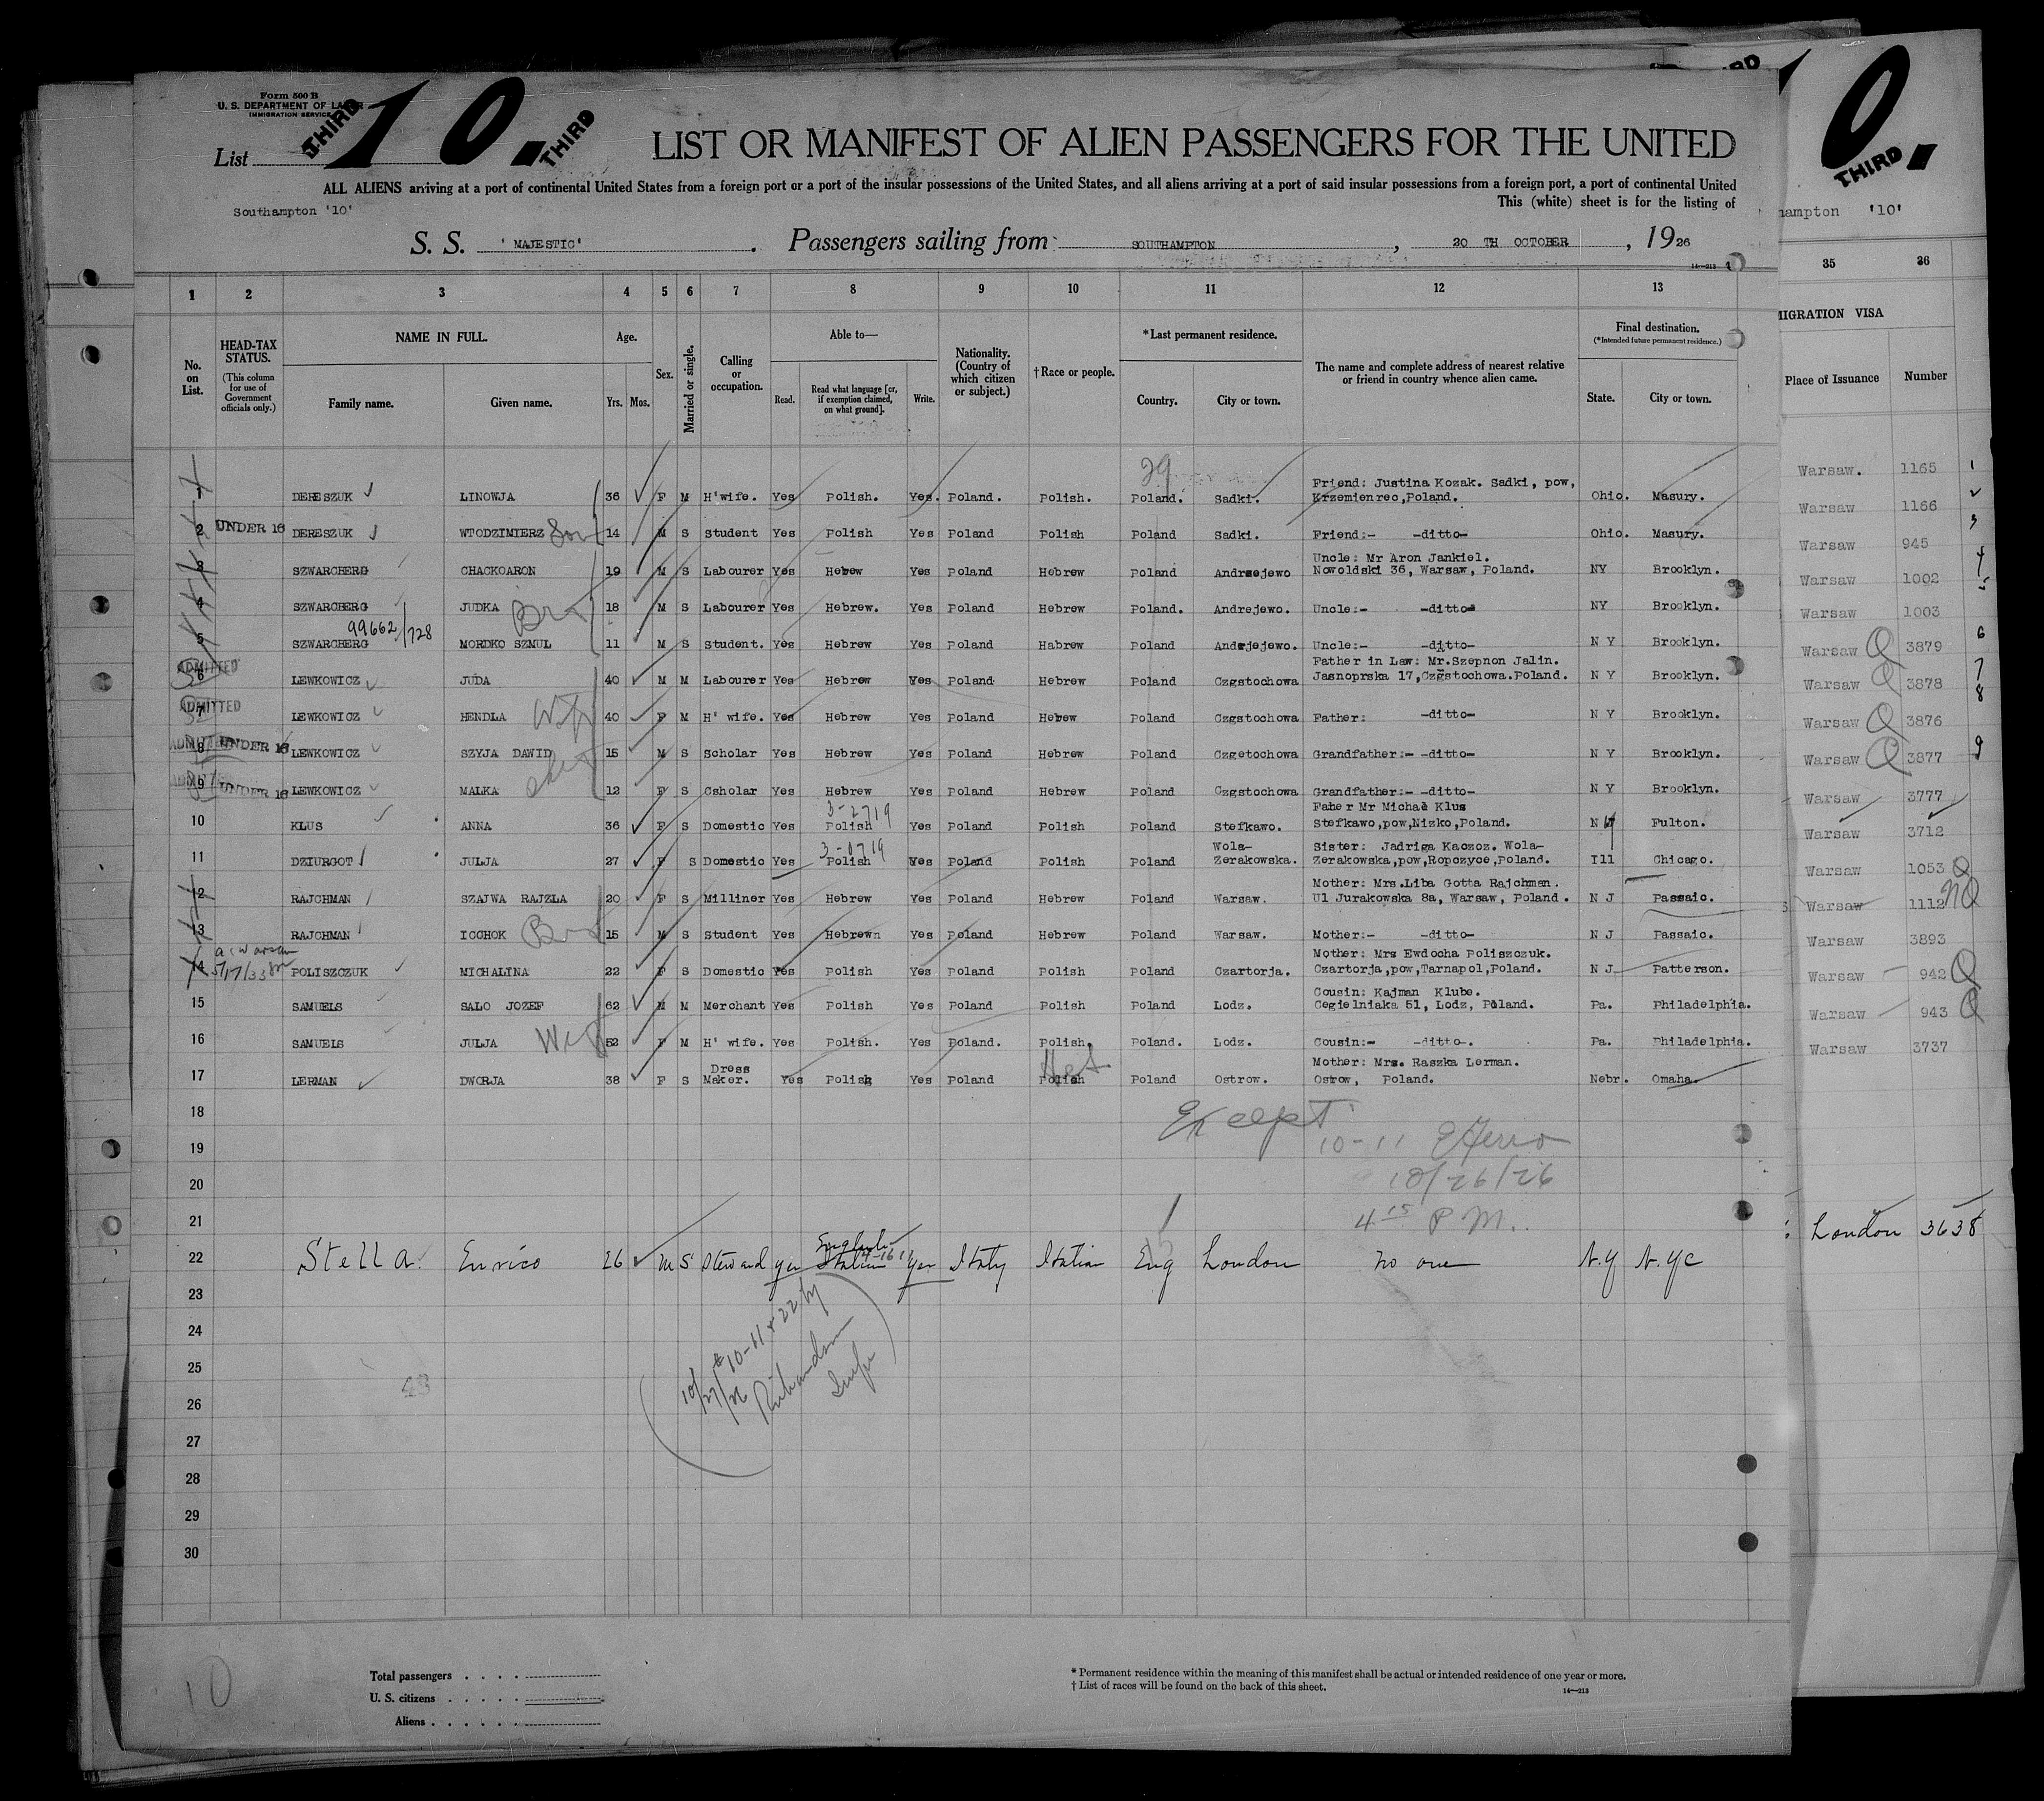 Form 500 B
U. S. DEPARTMENT OF LABOR
IMMIGRATION SERVICE
List THIRD 10. THIRD
LIST OR MANIFEST OF ALIEN PASSENGERS FOR THE UNITED
ALL ALIENS arriving at a port of continental United States from a foreign port or a port of the insular possessions of the United States, and all aliens arriving at a port of said insular possessions from a foreign port, a port of continental United
This (white) sheet is for the listing of
Southampton '10'
S. S. 'MAJESTIC'. Passengers sailing from SOUTHAMPTON, 20 TH OCTOBER, 1926
14—213
1 2 3 4 5 6 7 8 9 10 11 12 13
No. on List.
HEAD-TAX STATUS.
(This column for use of Government officials only.)
NAME IN FULL.
Family name. Given name.
Age.
Yrs. Mos.
Sex.
Married or single.
Calling or occupation.
Able to—
Read. Read what language [or, if exemption claimed, on what ground]. Write.
Nationality. (Country of which citizen or subject.)
†Race or people.
*Last permanent residence.
Country. City or town.
The name and complete address of nearest relative or friend in country whence alien came.
Final destination.
(*Intended future permanent residence.)
State. City or town.
29
Friend: Justina Kozak. Sadki, pow,
1 DERESZUK LINOWJA 36 F M H'wife. Yes Polish. Yes. Poland. Polish. Poland. Sadki. Krzemienrec,Poland. Ohio. Masury.
2 UNDER 16 DERESZUK WTODZIMIERZ Son 14 M S Student Yes Polish Yes Poland Polish Poland Sadki. Friend:- -ditto- Ohio. Masury.
Uncle: Mr Aron Jankiel.
3 SZWARCBERG CHACKOARON 19 M S Labourer Yes Hebrew Yes Poland Hebrew Poland Andrzejewo Nowoldski 36, Warsaw, Poland. NY Brooklyn.
4 SZWARCBERG JUDKA Bro 18 M S Labourer Yes Hebrew. Yes Poland Hebrew Poland. Andrejewo. Uncle:- -ditto- NY Brooklyn.
99662/728
5 SZWARCBERG MORDKO SZMUL 11 M S Student. Yes Hebrew Yes Poland Habrew Poland Andrjejewo. Uncle:- -ditto- N Y Brooklyn.
ADMITTED
Father in Law: Mr.Szepnon Jalin.
6 LEWKOWICZ JUDA 40 M M Labourer Yes Hebrew Yes Poland Hebrew Poland Czgstochowa Jasnoprska 17,Czgstochowa.Poland. N Y Brooklyn.
ADMITTED
7 LEWKOWICZ HENDLA Wife 40 F M H' wife. Yes Hebrew Yes Poland Hebrew Poland Czgstochowa Father: -ditto- N Y Brooklyn.
8 UNDER 16 LEWKOWICZ SZYJA DAWID 15 M S Scholar Yes Hebrew Yes Poland Hebrew Poland Czgetochowa Grandfather:- -ditto- N Y Brooklyn.
9 UNDER 16 LEWKOWICZ MALKA 12 F S Csholar Yes Hebrew Yes Poland Hebrew Poland Czgstochowa Grandfather:- -ditto- N Y Brooklyn.
3-2719
Faher Mr Michae Klus
10 KLUS ANNA 36 F S Domestic Yes Polish Yes Poland Polish Poland Stefkawo. Stefkawo,pow,Nizko,Poland. N Y Fulton.
3-0719
Wola- Sister: Jadriga Kaczoz. Wola-
11 DZIURGOT JULJA 27 F S Domestic Yes Polish Yes Poland Polish Poland Zerakowska. Zerakowska,pow,Ropczyce,Poland. Ill Chicago.
Mother: Mrs.Liba Gotta Rajchman.
12 RAJCHMAN SZAJWA RAJZLA 20 F S Milliner Yes Hebrew Yes Poland Hebrew Poland Warsaw. Ul Jurakowska 8a, Warsaw, Poland. N J Passaic.
13 RAJCHMAN ICCHOK Bro 15 M S Student Yes Hebrewn Yes Poland Hebrew Poland Warsaw. Mother:- -ditto- N J Passaic.
Mother: Mrs Ewdocha Poliszczuk.
14 5/17/33 POLISZCZUK MICHALINA 22 F S Domestic Yes Polish Yes Poland Polish Poland Czartorja. Czartorja,pow,Tarnapol,Poland. N J Patterson.
Cousin: Kajman Klube.
15 SAMUELS SALO JOZEF 62 M M Merchant Yes Polish Yes Poland Polish Poland Lodz. Cegielniaka 51, Lodz, Poland. Pa. Philadelphia.
16 SAMUELS JULJA Wife 52 F M H' wife. Yes Polish. Yes Poland. Polish. Poland. Lodz. Cousin:- -ditto-. Pa. Philadelphia.
Dress Heb Mother: Mrs. Raszka Lerman.
17 LERMAN DWORJA 38 F S Maker. Yes Polish Yes Poland Polish Poland Ostrow. Ostrow, Poland. Nebr. Omaha.
18 Except
19 10-11
20 10/26/26
21 4 15 P M.
English
22 Stella Enrico 26 M S Steward yes Italian yes Italy Italian Eng London no one N.Y N.Y C
23
24
25
26
27
28
29
30
10/27/26 10-11 & 22 by
Richardson
Insp
43
10
Total passengers
U. S. citizens
Aliens
* Permanent residence within the meaning of this manifest shall be actual or intended residence of one year or more.
† List of races will be found on the back of this sheet.
14—213
0.
THIRD
hampton '10'
35 36
MIGRATION VISA
Place of Issuance Number
Warsaw. 1165 1
Warsaw 1166 2
Warsaw 945 3
Warsaw 1002 4
Warsaw 1003 5
Warsaw Q 3879 6
Warsaw Q 3878 7
Warsaw Q 3876 8
Warsaw Q 3877 9
Warsaw 3777
Warsaw 3712
Warsaw 1053 Q
Warsaw 1112 NQ
Warsaw 3893
Warsaw 942 Q
Warsaw 943 Q
Warsaw 3737
London 3638